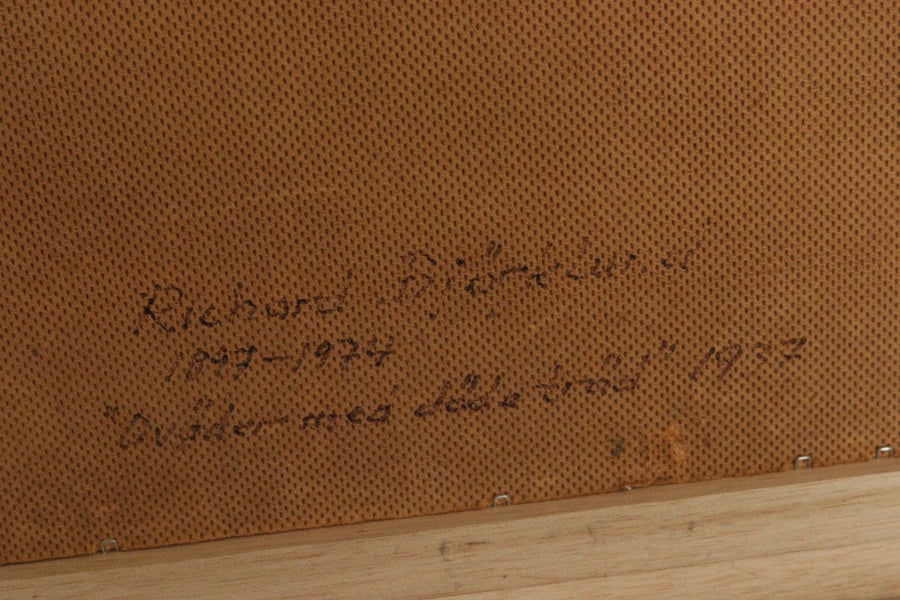 Richard Björklund
1897-1974
"Oväder med döda träd" 1937